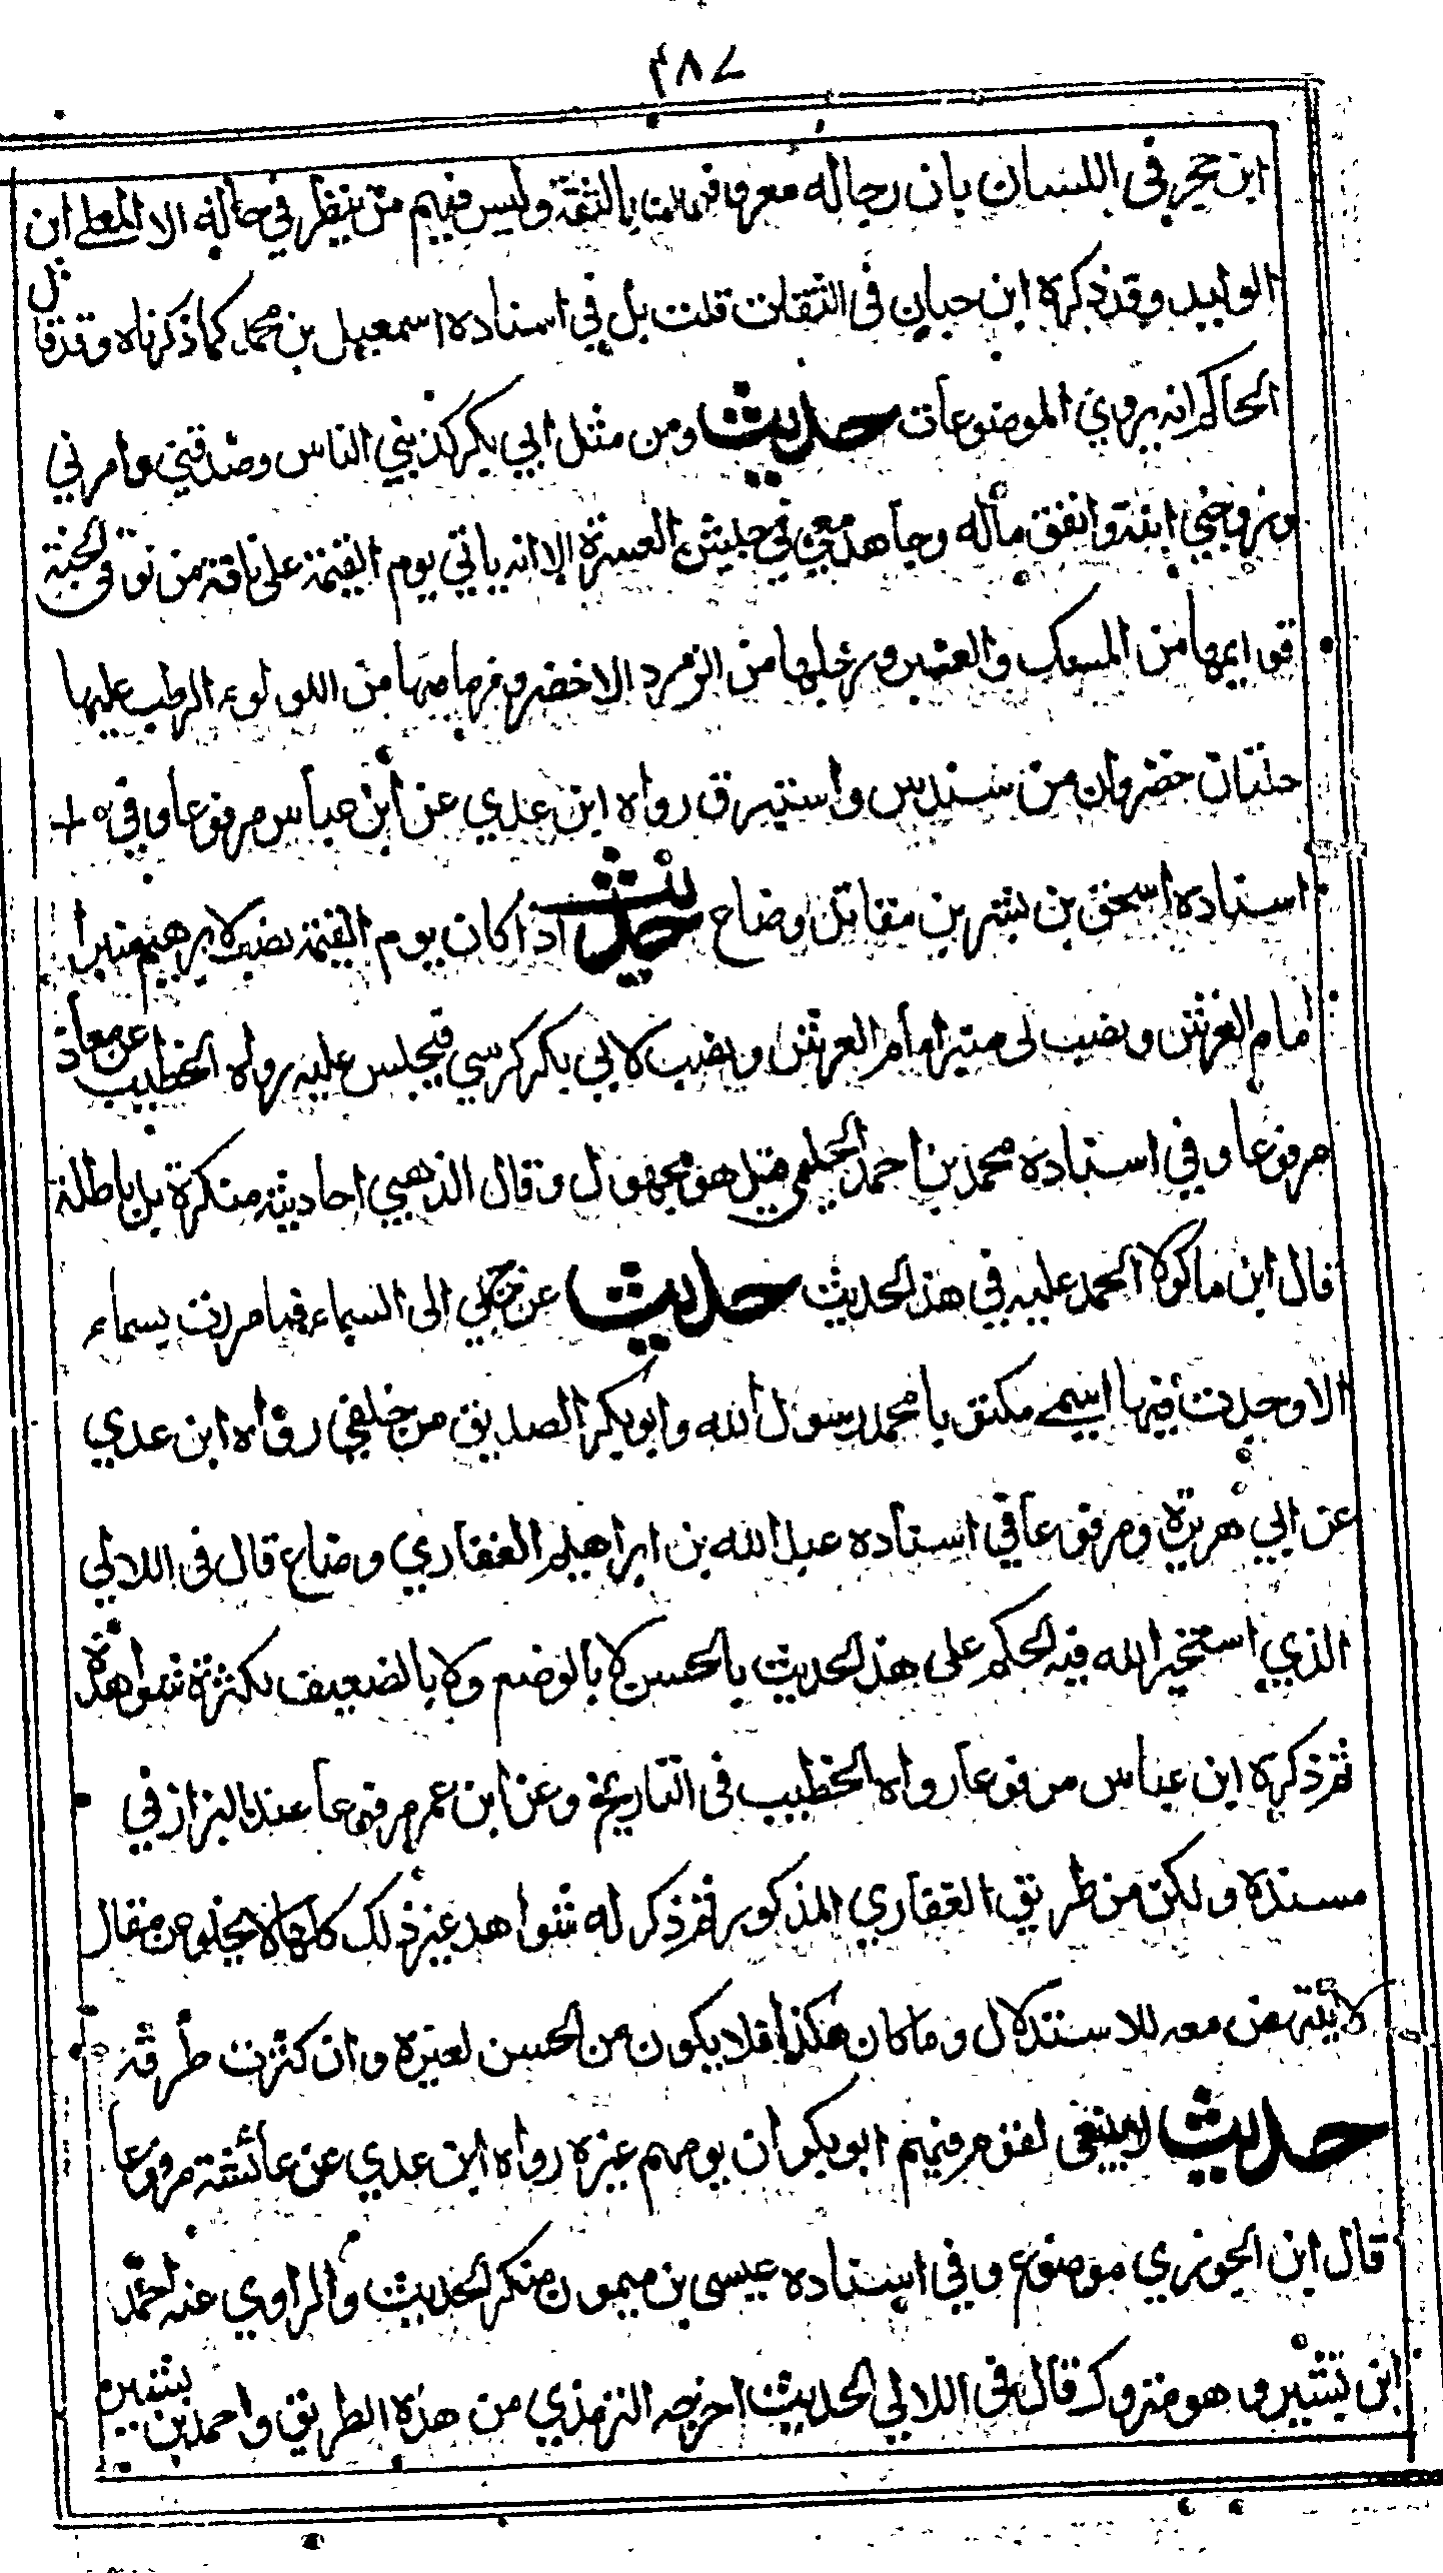 ٢٨٧
ابن حجر في اللسان بان رجاله معروفون بالثقة وليس فيهم من ينظر في حاله الا المعلى ابن
الوليد وقد ذكره ابن حبان في الثقات قلت بل في اسناده اسمعيل بن محمد كما ذكرناه وقد قال
الحاكم انه يروي الموضوعات حديث ومن مثل ابي بكر كذبني الناس وصدقني وامن بي
وزوجني ابنته وانفق ماله وجاهد معي في جيش العسرة الا انه ياتي يوم القيمة على ناقة من نوق الجنة
قوايمها من المسك والعنبر ورجلها من الزمرد الاخضر وزمامها من اللولوء الرطب عليها
حلتان خضروان من سندس واستبرق رواه ابن عدي عن ابن عباس مرفوعا وفي
اسناده اسحق بن بشر بن مقاتل وضاع حديث اذا كان يوم القيمة نصب لابرهيم منبرا
امام العرش ونصب لى منبر امام العرش ونصب لابي بكر كرسي فيجلس عليه رواه الخطيب عن معاذ
مرفوعا وفي اسناده محمد بن احمد الحليمي قيل هو مجهول وقال الذهبي احاديثه منكرة بل باطلة
قال ابن ماكولا الحمد عليه في هذا الحديث حديث عرج بي الى السماء فما مررت بسماء
الا وجدت فيها اسمي مكتوب يا محمد رسول الله وابو بكر الصديق من خلفي رواه ابن عدي
عن ابي هريرة ومرفوعا في اسناده عبد الله بن ابراهيم الغفاري وضاع قال في اللالي
الذي استخير الله فيه الحكم على هذا الحديث بالحسن لا بالوضع ولا بالضعيف لكثرة شواهده
ثم ذكره ابن عباس مرفوعا رواه الخطيب في التاريخ وعن ابن عمر مرفوعا عند البزار في
مسنده ولكن من طريق الغفاري المذكور ثم ذكر له شواهد غير ذلك كلها لا يخلو من مقال
لا ينتهض معه للاستدلال وما كان هكذا فلا يكون من الحسن لغيره وان كثرت طرقه
حديث لا ينبغي لقوم فيهم ابو بكر ان يومهم غيره رواه ابن عدي عن عائشة مرفوعا
قال ابن الجوزي موضوع وفي اسناده عيسى بن ميمون منكر الحديث والراوي عنه احمد
ابن بشير وهو متروك قال في اللالي الحديث اخرجه الترمذي من هذه الطريق واحمد بن بشير